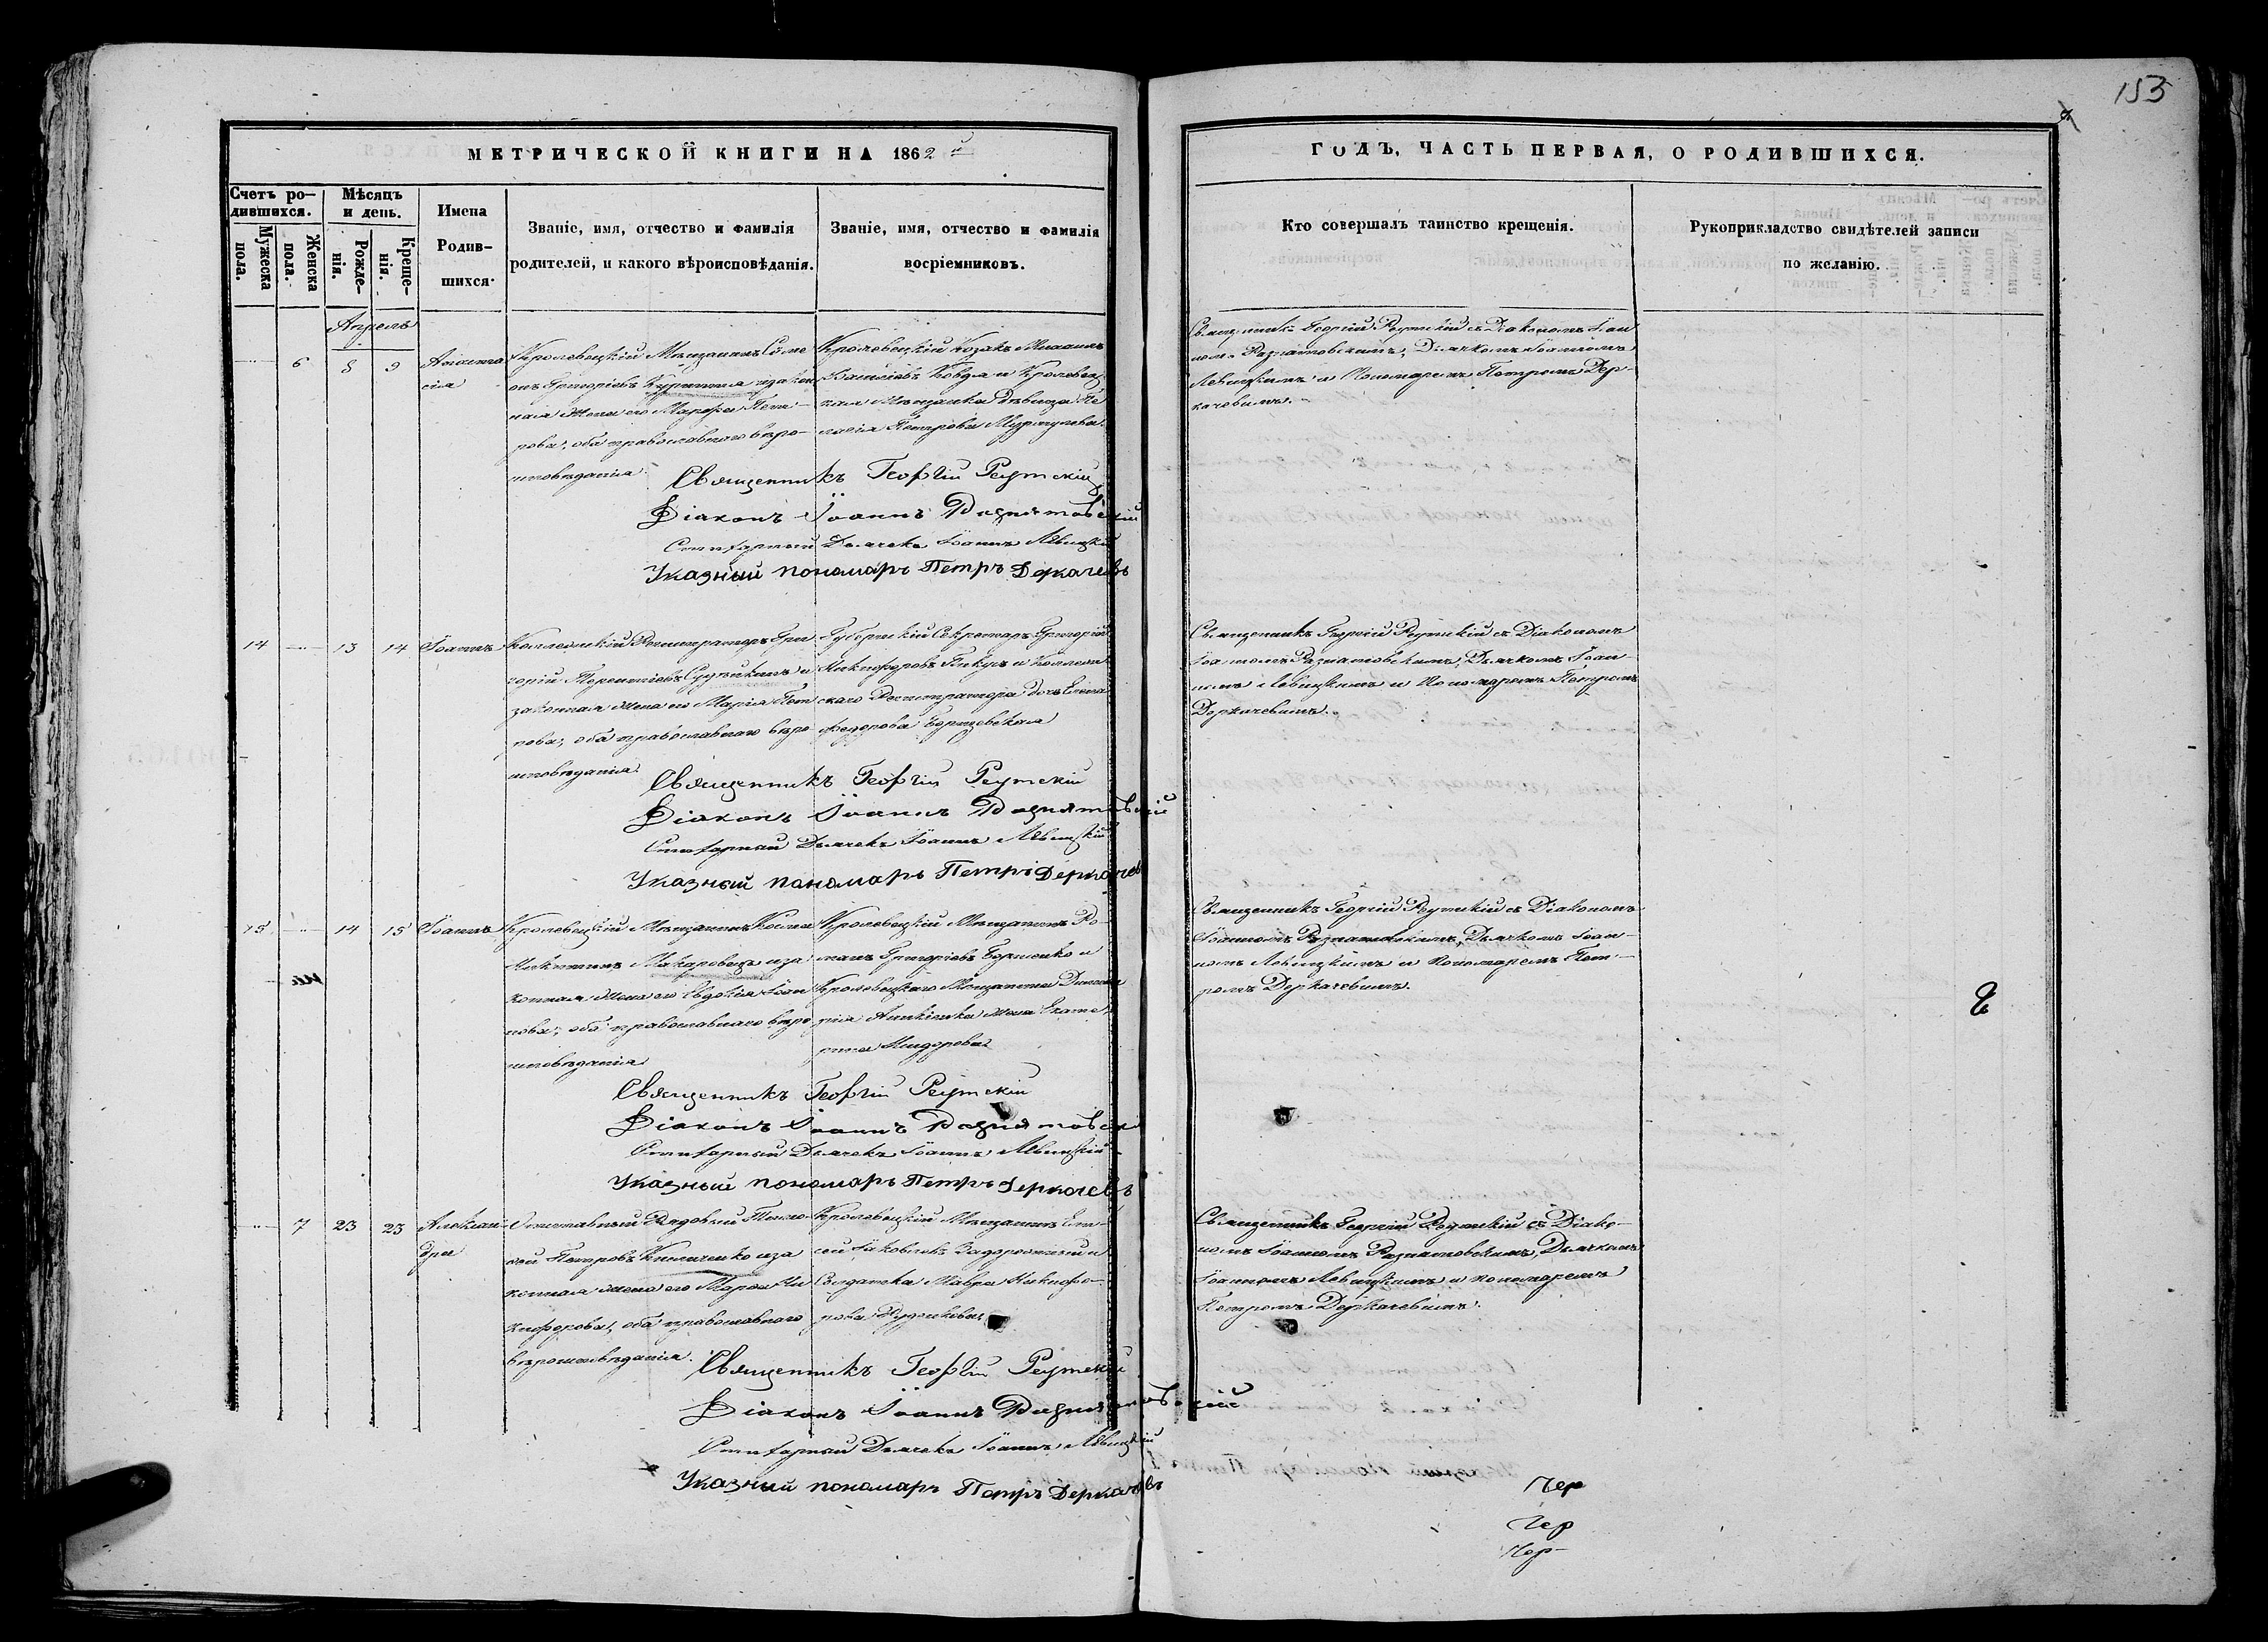 153
МЕТРИЧЕСКОЙ КНИГИ НА 1862 й
ГОДЪ, ЧАСТЬ ПЕРВАЯ, О РОДИВШИХСЯ.
Счетъ ро-
дившихся.
Мужеска
пола.
Женска
пола.
Мѣсяцъ
и день.
Рожде-
нія.
Креще-
нія.
Имена
Родив-
шихся.
Званіе, имя, отчество и фамилія
родителей, и какого вѣроисповѣданія.
Званіе, имя, отчество и фамилія
воспріемниковъ.
Кто совершалъ таинство крещенія.
Рукоприкладство свидѣтелей записи
по желанію.
Апрель
6 8 9
Анаста
сія
Кролевецкій Мѣщанинъ Симе
онъ Григоріевъ и закон
ная жена его Марфа Пет-
рова, оба православнаго вѣро-
исповѣданія
Кролевецкій Козакъ Михаилъ
Василіевъ Ковда и Кролевец
кая Мѣщанка Дѣвица Пе
лагія Петрова
Священникъ Георгій Реутскій съ Діакономъ Іоан
номъ Рознатовскимъ, Дьячкомъ Іоанномъ
Левицкимъ и Пономаремъ Петромъ Дер-
качевимъ.
Священникъ Георгій Реутскій
Діаконъ Іоаннъ Рознатовскій
Дьячекъ Іоаннъ Левицкій
Указный пономарь Петръ Деркачевъ
14 13 14 Іоаннъ
Коллежскій Регистраторъ Гри
горій Терентіевъ и
законная жена его Марія Пет
рова, оба православнаго вѣро
исповѣданія
Губернскій Секретарь Григорій
Никифоровъ и Коллеж
скаго Регистратора дочь Елена
Федорова
Священникъ Георгій Реутскій съ Діакономъ
Іоанномъ Рознатовскимъ, Дьячкомъ Іоан-
номъ Левицкимъ и Пономаремъ Петромъ
Деркачевимъ.
Священникъ Георгій Реутскій
Діаконъ Іоаннъ Рознатовскій
Дьячекъ Іоаннъ Левицкій
Указный пономарь Петръ Деркачев
15 14 15 Іоаннъ
Кролевецкій Мѣщанинъ Косма
Никитинъ Макаровецъ и за
конная жена его Евдокія Іоан
нова, оба православнаго вѣро
исповѣданія
Кролевецкій Мѣщанинъ Ро-
манъ Григоріевъ и
Кролевецкаго Мѣщанина
жена Екате
рина
Священникъ Георгій Реутскій съ Діакономъ
Іоанномъ Рознатовскимъ, Дьячкомъ Іоан-
номъ Левицкимъ и Пономаремъ Пет-
ромъ Деркачевимъ.
Священникъ Георгій Реутскій
Діаконъ Іоаннъ Рознатовскі
Дьячекъ Іоаннъ Левицкій
Указный пономарь Петръ Деркачевъ
7 23 23
Алексан-
дра
Отставный Рядовый Тимо-
фей Петровъ и за
конная жена его Марфа Ни
кифорова, оба православнаго
вѣроисповѣданія.
Кролевецкій Мѣщанинъ Ели-
сей Іаковлевъ Задорожный и
Солдатка Мавра Никифо-
рова
Священникъ Георгій Реутскій съ Діако-
номъ Іоанномъ Рознатовскимъ, Дьячкомъ
Іоанномъ Левицкимъ и пономаремъ
Петромъ Деркачевимъ.
Священникъ Георгій Реутскій
Діаконъ Іоаннъ Рознатовскій
Дьячекъ Іоаннъ Левицкій
Указный пономарь Петръ Деркачевъ
Чер
Чер
Чер-